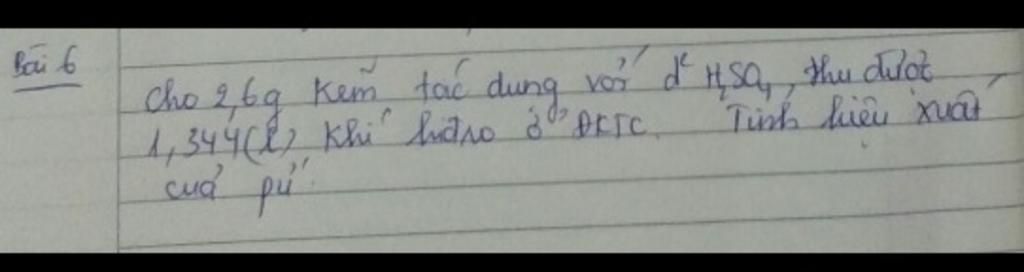 Bài 6
Cho 2,6g kẽm tác dụng với d² H₂SO₄, thu được
1,344(l) khí hiđro ở ĐKTC. Tính hiệu xuất
của pứ